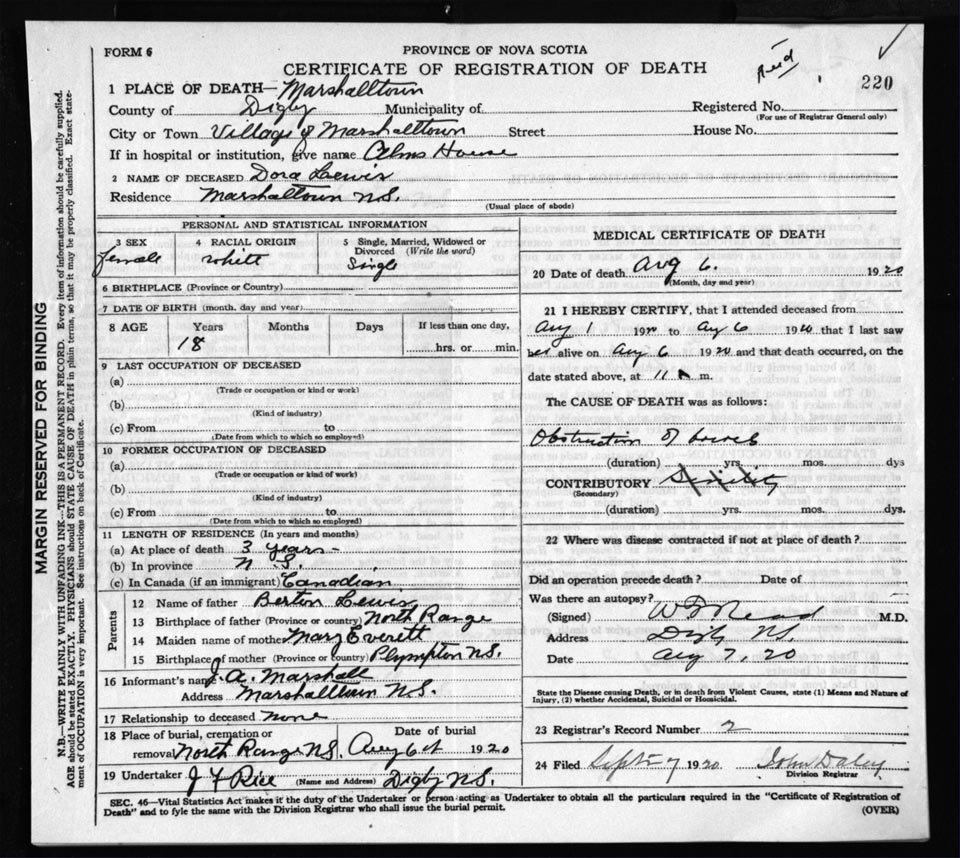 FORM 6
PROVINCE OF NOVA SCOTIA
CERTIFICATE OF REGISTRATION OF DEATH
220
1 PLACE OF DEATH— Marshalltown
County of Digby Municipality of Registered No.
(For use of Registrar General only)
City or Town Village of Marshalltown Street House No.
If in hospital or institution, give name Alms House
2 NAME OF DECEASED Dora Lewis
Residence Marshalltown N.S.
(Usual place of abode)
MARGIN RESERVED FOR BINDING
N.B.—WRITE PLAINLY WITH UNFADING INK—THIS IS A PERMANENT RECORD. Every item of information should be carefully supplied.
AGE should be stated EXACTLY. PHYSICIANS should STATE CAUSE OF DEATH in plain terms, so that it may be properly classified. Exact state-
ment of OCCUPATION is very important. See instructions on back of Certificate.
PERSONAL AND STATISTICAL INFORMATION
3 SEX 4 RACIAL ORIGIN 5 Single, Married, Widowed or
Divorced (Write the word)
female white Single
6 BIRTHPLACE (Province or Country)
7 DATE OF BIRTH (month, day and year)
8 AGE Years Months Days If less than one day,
18 hrs. or min.
9 LAST OCCUPATION OF DECEASED
(a)
(Trade or occupation or kind or work)
(b)
(Kind of industry)
(c) From to
(Date from which to which so employed)
10 FORMER OCCUPATION OF DECEASED
(a)
(Trade or occupation or kind of work)
(b)
(Kind of industry)
(c) From to
(Date from which to which so employed)
11 LENGTH OF RESIDENCE (In years and months)
(a) At place of death 3 years -
(b) In province N.S.
(c) In Canada (if an immigrant) Canadian
Parents
12 Name of father Berton Lewis
13 Birthplace of father (Province or country) North Range
14 Maiden name of mother Mary Everett
15 Birthplace of mother (Province or country) Plympton N.S.
16 Informant's name J. A. Marshall
Address Marshalltown N.S.
17 Relationship to deceased none
18 Place of burial, cremation or Date of burial
removal North Range N.S. Aug 6th 1920
19 Undertaker J F Rice (Name and Address) Digby N.S.
MEDICAL CERTIFICATE OF DEATH
20 Date of death Aug 6. 1920
(Month, day and year)
21 I HEREBY CERTIFY, that I attended deceased from
Aug 1 1920 to Aug 6 1920 that I last saw
her alive on Aug 6 1920 and that death occurred, on the
date stated above, at 11 A m.
The CAUSE OF DEATH was as follows:
Obstruction of bowels
(duration) yrs. mos. dys
CONTRIBUTORY
(Secondary)
(duration) yrs. mos. dys.
22 Where was disease contracted if not at place of death?
Did an operation precede death? Date of
Was there an autopsy?
(Signed) M.D.
Address Digby NS
Date Aug 7, 20
State the Disease causing Death, or in death from Violent Causes, state (1) Means and Nature of
Injury, (2) whether Accidental, Suicidal or Homicidal.
23 Registrar's Record Number 2
24 Filed Sept 7 1920 John Daley
Division Registrar
SEC. 46—Vital Statistics Act makes it the duty of the Undertaker or person acting as Undertaker to obtain all the particulars required in the "Certificate of Registration of
Death" and to fyle the same with the Division Registrar who shall issue the burial permit.
(OVER)